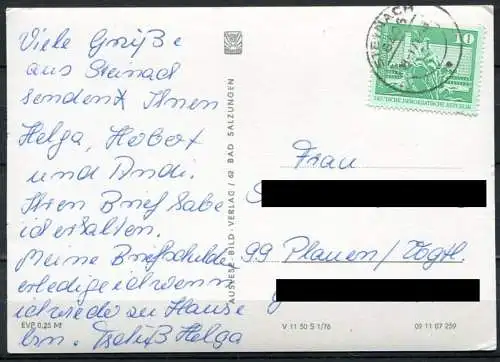 Viele Grüße
aus Steinach
senden Ihnen
Helga, Hobert
und Andi.
Ihren Brief habe
ich erhalten.
Meine Briefschulden
erledige ich wenn
ich wieder zu Hause
bin. Tschüß Helga
AUSLESE-BILD-VERLAG / 62 BAD SALZUNGEN
STEINACH
10
DEUTSCHE DEMOKRATISCHE REPUBLIK
Frau
99 Plauen/Vogtl.
EVP 0,25 M
V 11 50 S 1/76
09 11 07 259